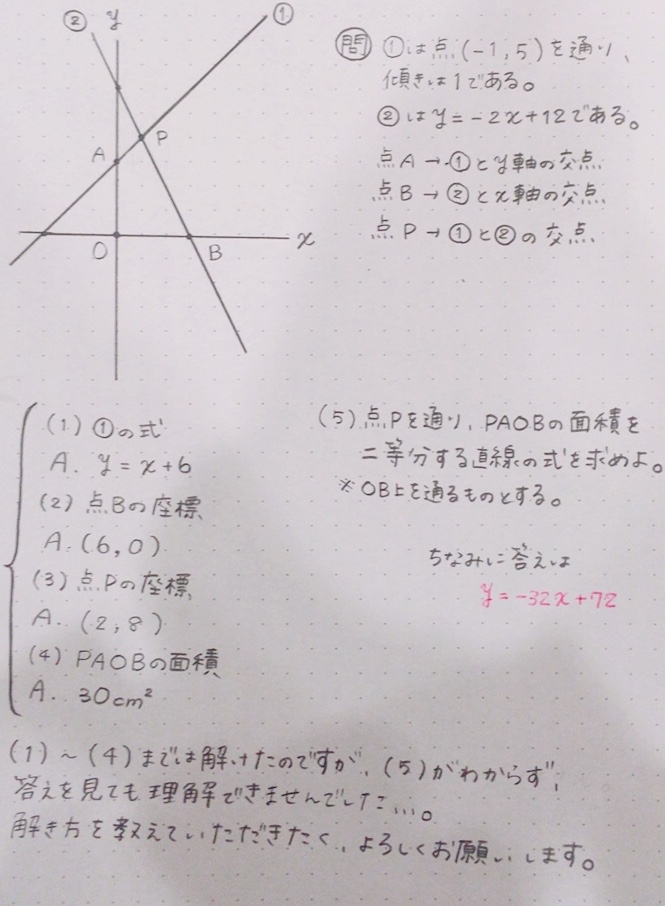 ② y ①
A P
O B x
問 ①は点(-1,5)を通り、
傾きは1である。
②はy=-2x+12である。
点A→①とy軸の交点
点B→②とx軸の交点
点P→①と②の交点
(1) ①の式
A. y=x+6
(2) 点Bの座標
A. (6,0)
(3) 点Pの座標
A. (2,8)
(4) PAOBの面積
A. 30cm²
(5) 点Pを通り、PAOBの面積を
二等分する直線の式を求めよ。
※OB上を通るものとする。
ちなみに答えは
y=-32x+72
(1)~(4)までは解けたのですが、(5)がわからず、
答えを見ても理解できませんでした…。
解き方を教えていただきたく、よろしくお願いします。